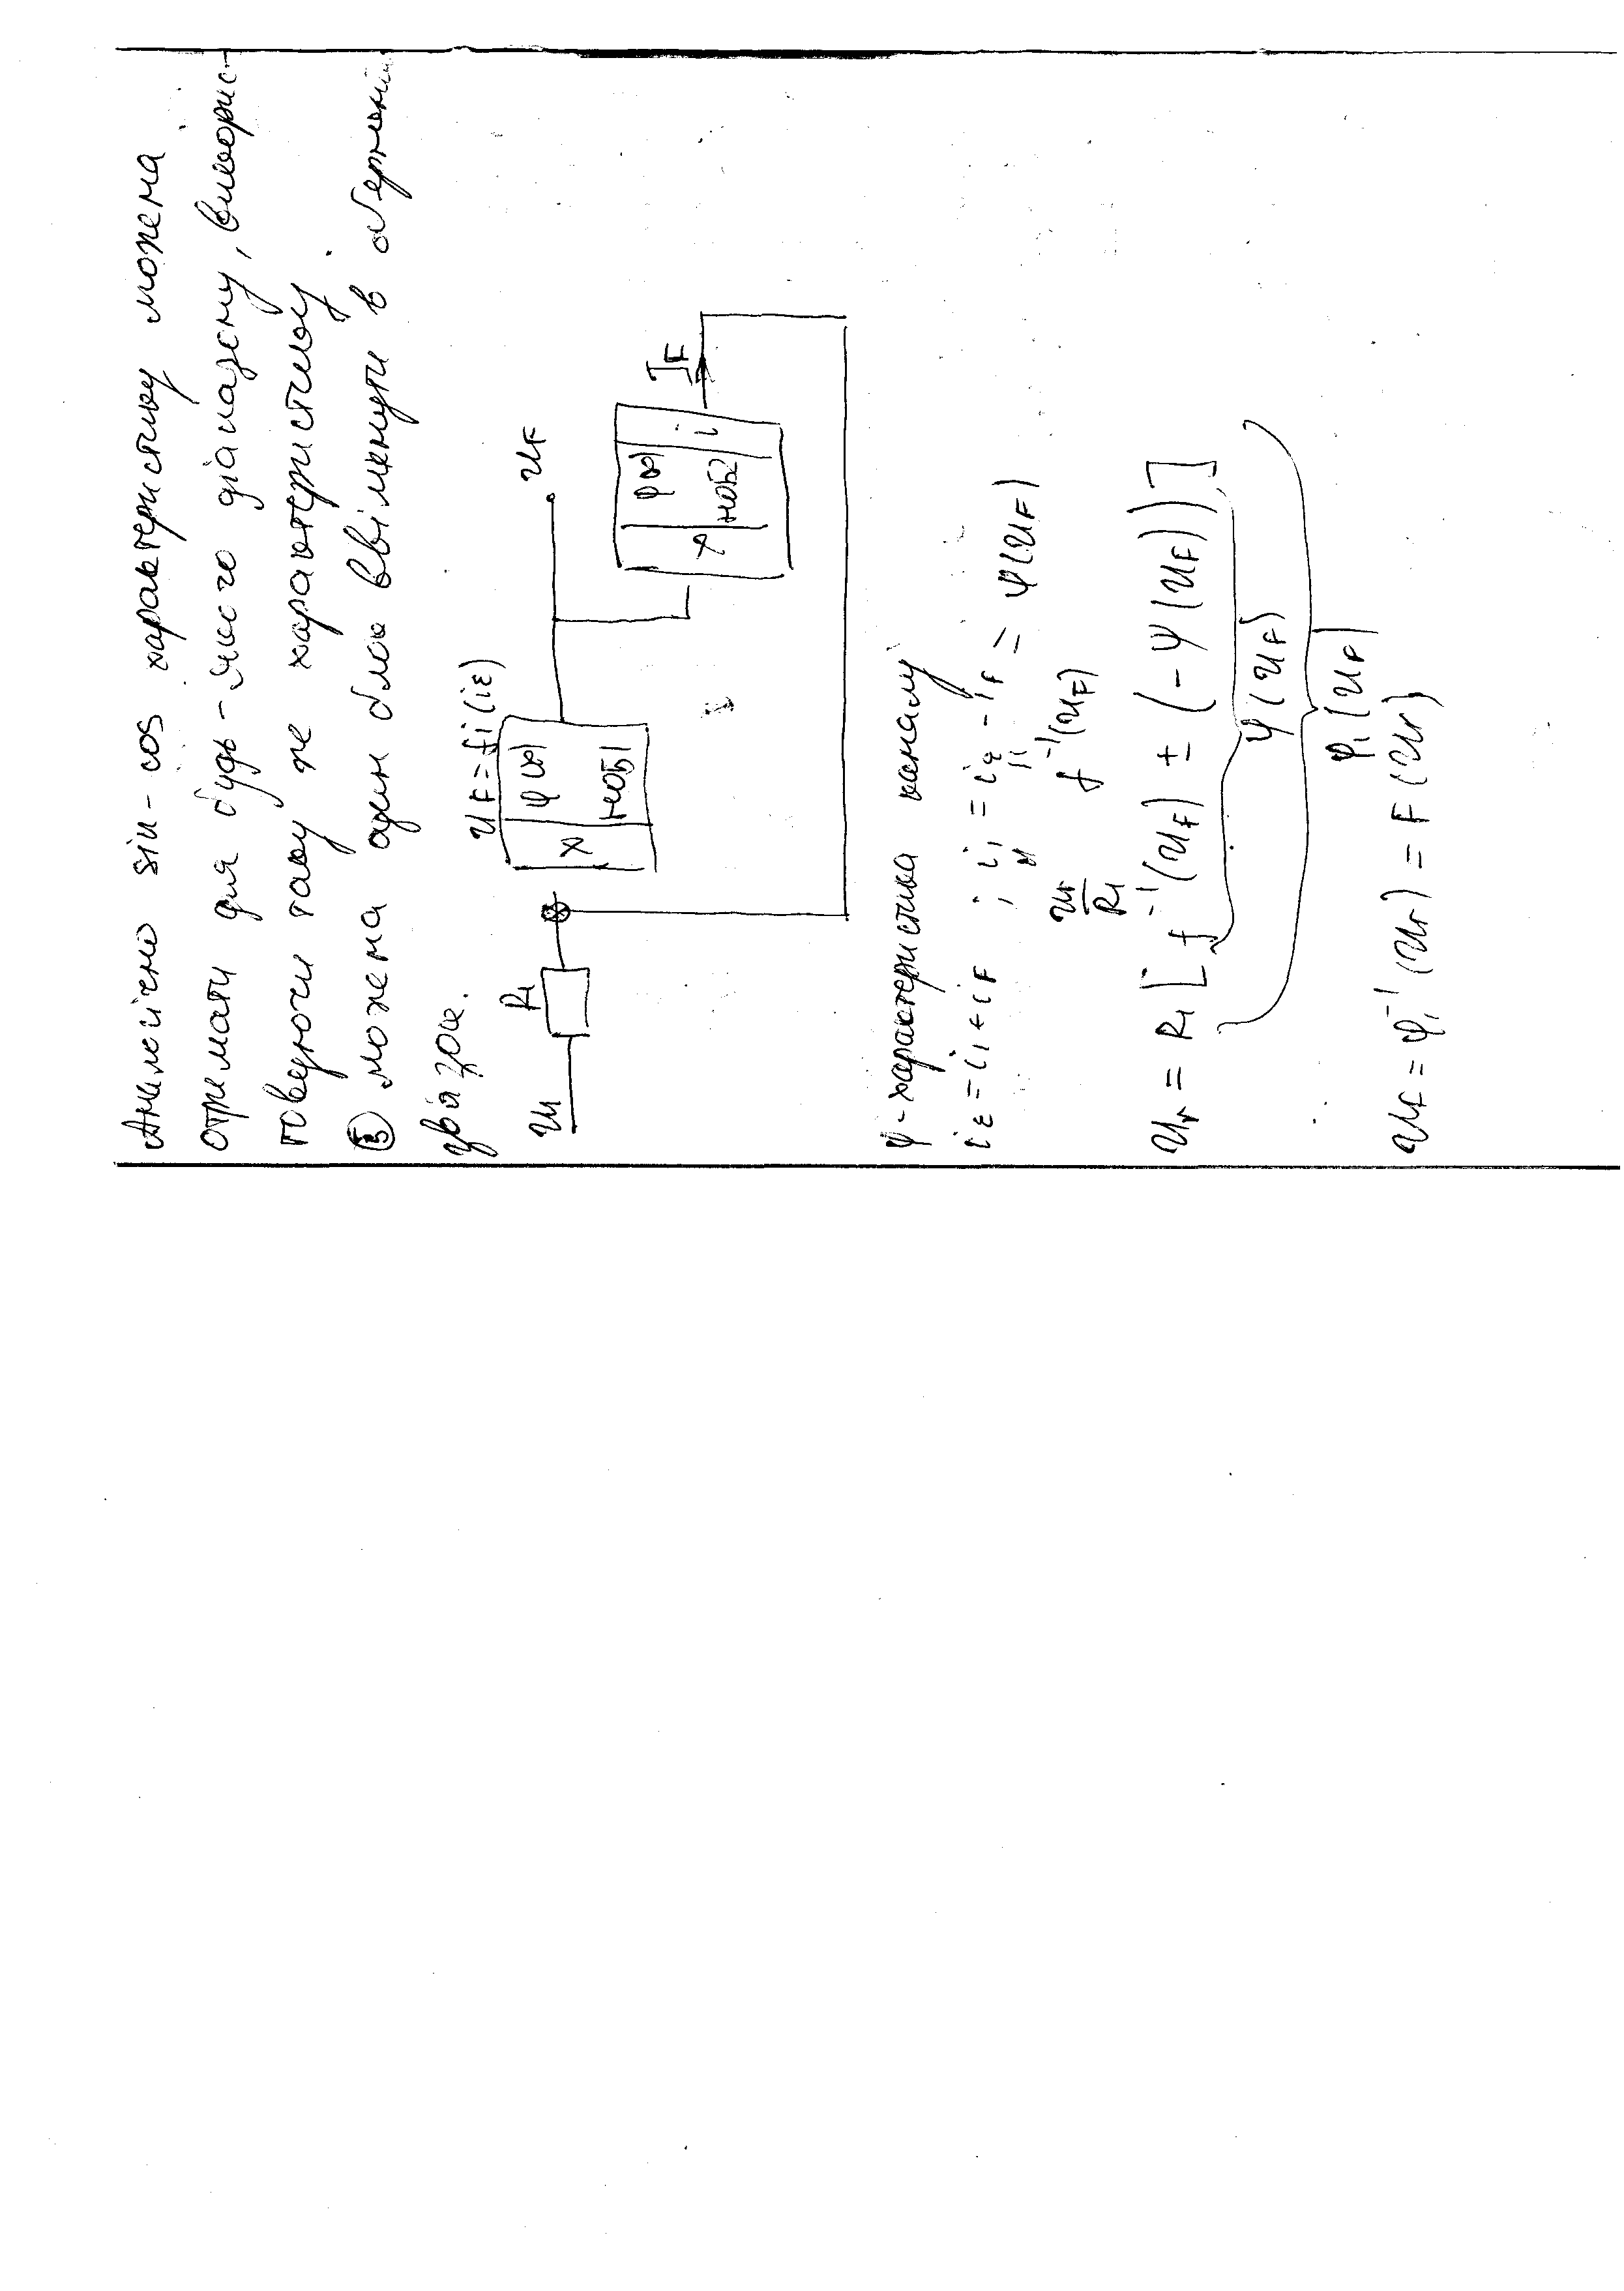 Аналогічно sin-cos характеристику можна
отримати для будь-якого діапазону, викорис-
товуючи таку же характеристику
③ можна один блок ввімкнути в обернений
зв'язок.
U R1 UF = fi(iε) UF
x φ(x) НОБ1
x φ(x) НОБ2 i IF
φ-характеристика каналу
iε = i1 + iF ; i1 = iε - iF = ψ(UF)
Ur/R1 f⁻¹(UF)
Ur = R1 [f⁻¹(UF) ± (-ψ(UF))]
ψ(UF)
φ1(UF)
UF = φ1⁻¹(Ur) = F(Ur)